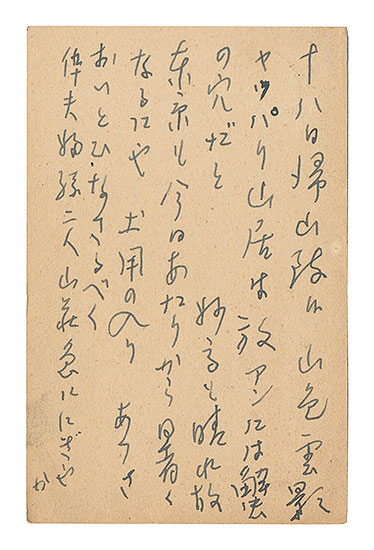 十八日帰山 山色雲影
ヤッパリ山居は放アンには解
の穴だと
妙高も晴れ
東京も今日あたりから暑く
なるにや 土用の入り あつさ
おいとひなさるべく
倅夫婦孫二人山荘急ににぎや
か